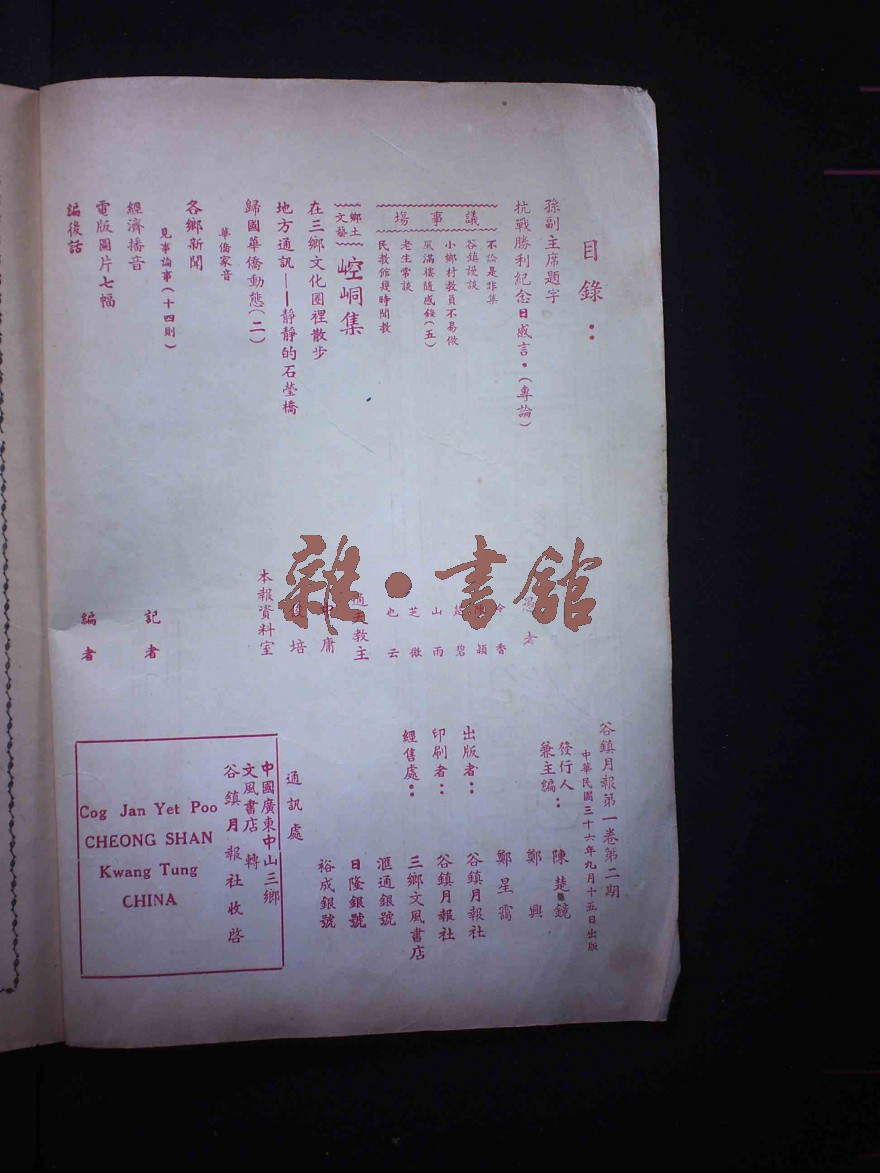 目錄：
孫副主席題字
抗戰勝利紀念日感言・(專論)
議事場
不論是非集
谷鎮談談
小鄉村教員不易做
風滿樓隨感錄(五)
老生常談
民教館幾時開教
鄉土文藝
崆峒集
在三鄉文化圈裡散步
地方通訊——靜靜的石瑩橋
歸國華僑動態(二)
華僑家音
各鄉新聞
見事論事(十四則)
經濟播音
電版圖片七幅
編後話
雜・書館
愚者
香
穎
碧
山雨
芝微
也云
教主
庸
培
本報資料室
記者
編者
谷鎮月報第一卷第二期
中華民國三十六年九月十五日出版
發行人
兼主編：
陳楚鏡
鄭興
鄭星靄
出版者：谷鎮月報社
印刷者：谷鎮月報社
經售處：三鄉文風書店
滙通銀號
日隆銀號
裕成銀號
通訊處
中國廣東中山三鄉
文風書店轉
谷鎮月報社收啓
Cog Jan Yet Poo
CHEONG SHAN
Kwang Tung
CHINA